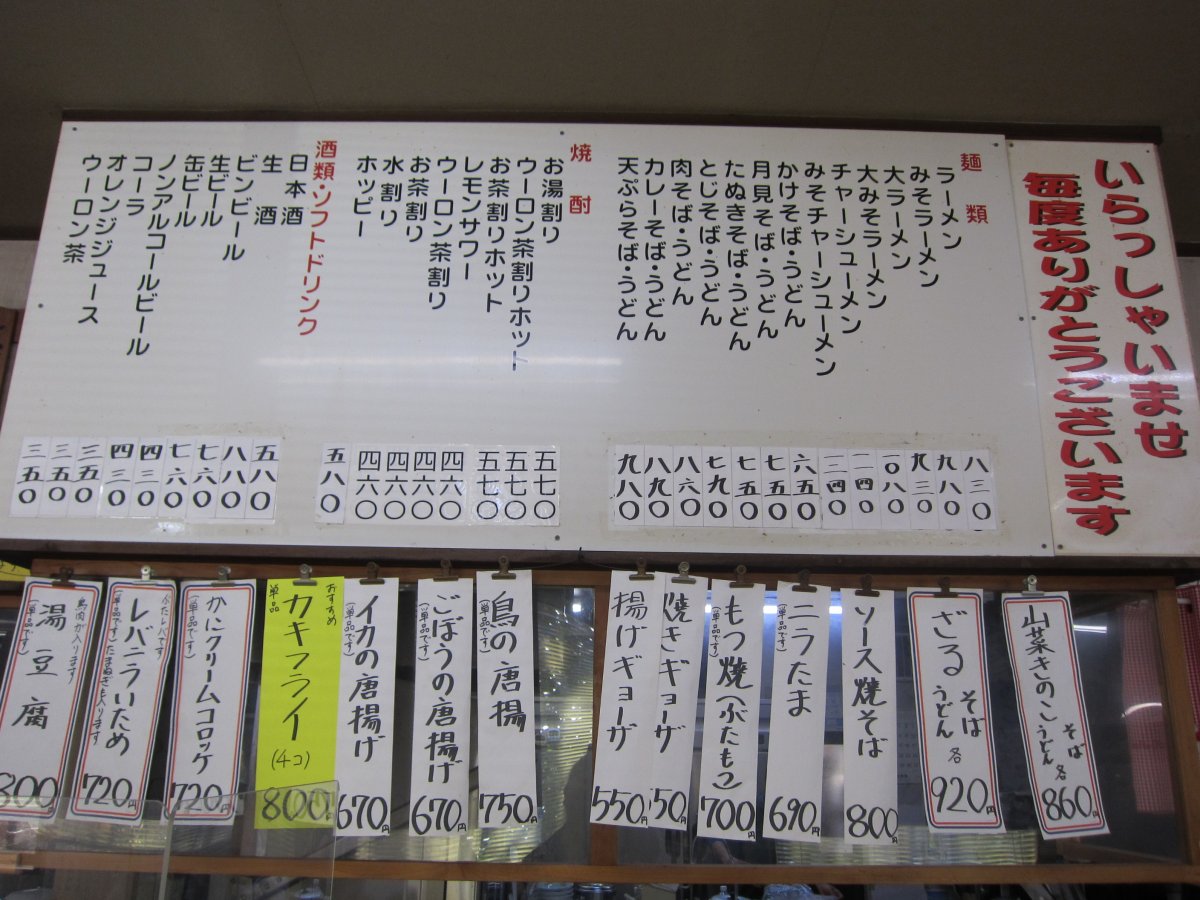 いらっしゃいませ
毎度ありがとうございます
麺類
ラーメン 八三〇
みそラーメン 九八〇
大ラーメン 九三〇
大みそラーメン 一〇八〇
チャーシューメン 一一四〇
みそチャーシューメン 一二四〇
かけそば・うどん 六五〇
月見そば・うどん 七五〇
たぬきそば・うどん 七五〇
とじそば・うどん 七九〇
肉そば・うどん 八六〇
カレーそば・うどん 八九〇
天ぷらそば・うどん 九八〇
焼酎
お湯割り 五七〇
ウーロン茶割りホット 五七〇
お茶割りホット 五七〇
レモンサワー 四六〇
ウーロン茶割り 四六〇
お茶割り 四六〇
水割り 四六〇
ホッピー 五八〇
酒類・ソフトドリンク
日本酒 五八〇
生酒 八八〇
ビンビール 七六〇
生ビール 七六〇
缶ビール 四三〇
ノンアルコールビール 四三〇
コーラ 三五〇
オレンジジュース 三五〇
ウーロン茶 三五〇
山菜きのこ そば うどん 各 860円
ざる そば うどん 各 920円
ソース焼そば 800円
ニラたま 690円
もつ焼(ぶたもつ) 700円
(単品です)
焼きギョーザ 550円
揚げギョーザ 550円
鳥の唐揚 750円
(単品です)
ごぼうの唐揚げ 670円
(単品です)
イカの唐揚げ 670円
(単品です)
おすすめ
カキフライ (4コ) 800円
単品
かにクリームコロッケ 720円
(単品です)
牛レバーです
レバニラいため 720円
(単品です)たまねぎも入ります
鳥肉が入ります
湯豆腐 800円
(単品です)